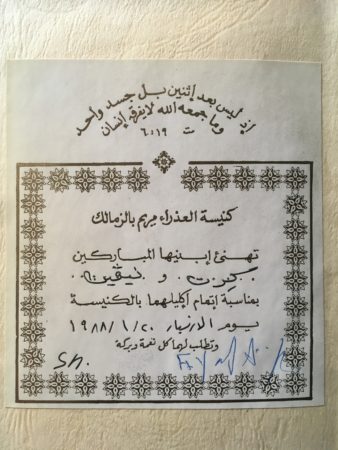 إذ ليس بعد إثنين بل جسد واحد
وما جمعه الله لا يفرقه إنسان
ت ٦:١٩
كنيسة العذراء مريم بالزمالك
تهنئ إبنيها المباركين
و نيڤين
بمناسبة إتمام أكليلهما بالكنيسة
يوم الاربعاء ٢٠/١/١٩٨٨
وتطلب لهما كل نعمة وبركة